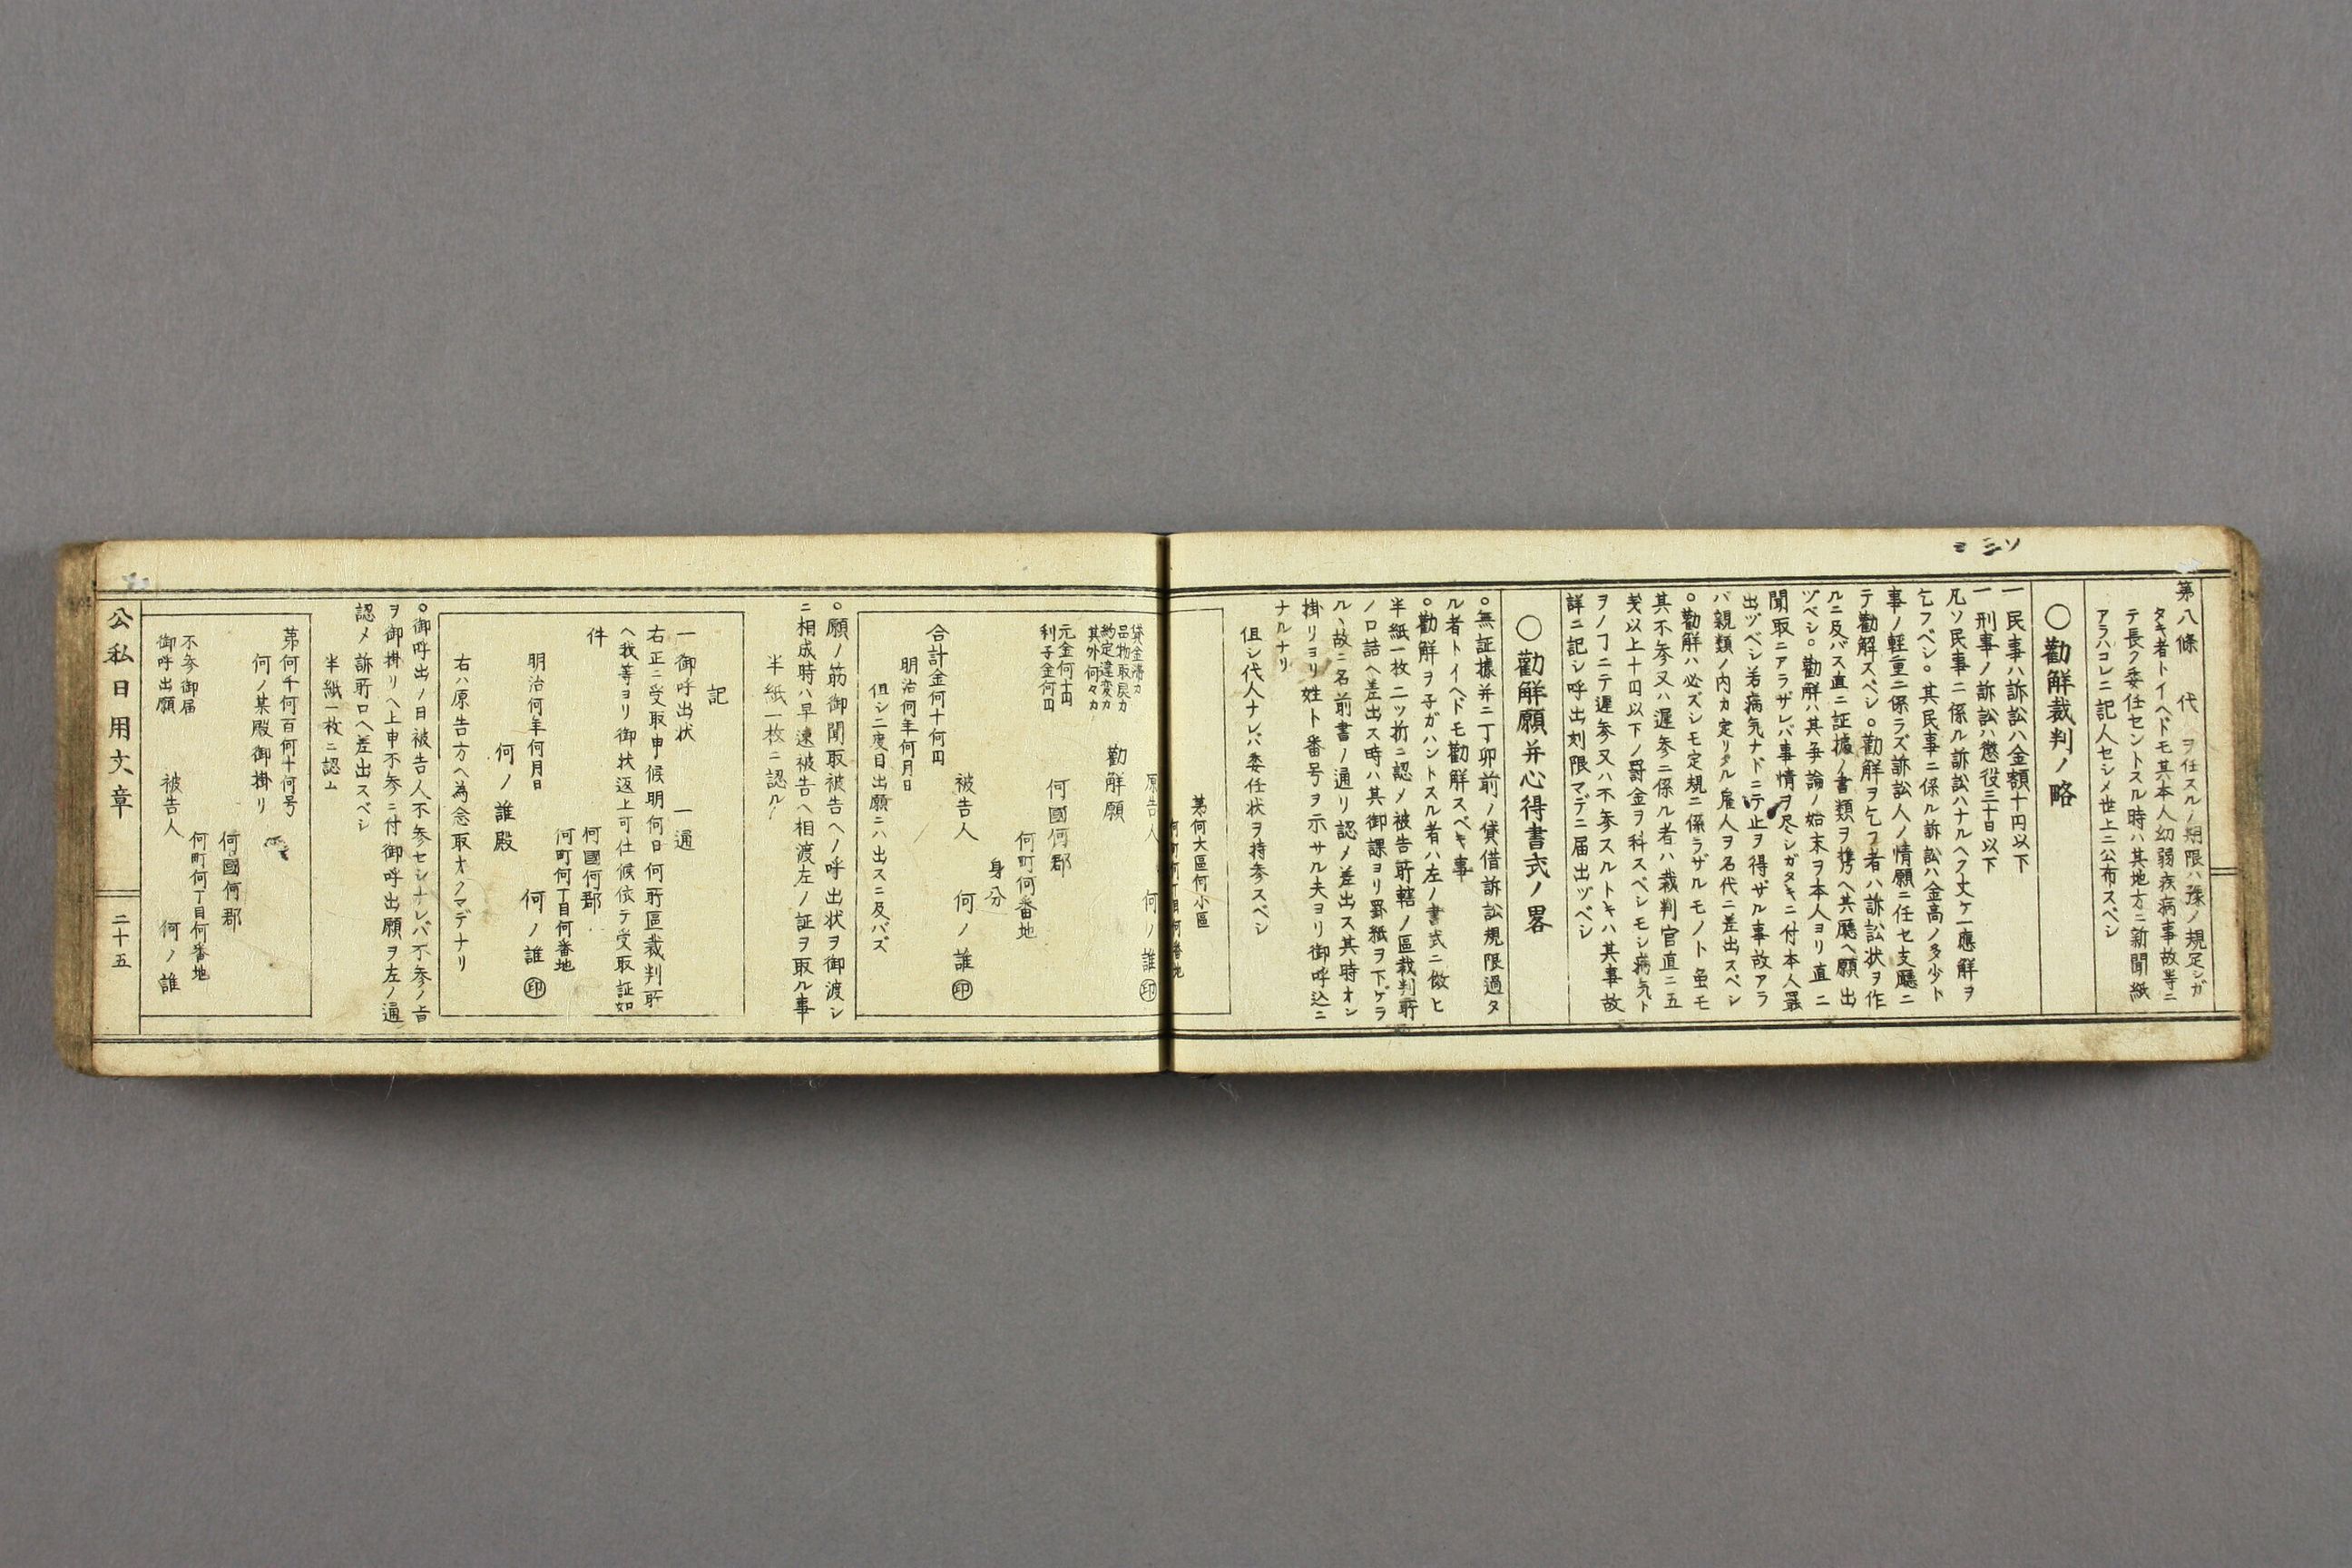 第八條 代 ヲ任スルノ期限ハ豫ノ規定シガ
タキ者トイヘドモ其本人幼弱疾病事故等ニ
テ長ク委任セントスル時ハ其地方ニ新聞紙
アラハコレニ記入セシメ世上ニ公布スベシ
〇勸解裁判ノ略
一民事ハ訴訟ハ金額十円以下
一刑事ノ訴訟ハ懲役三十日以下
凡ソ民事ニ係ル訴訟ハナルヘク丈ケ一應解ヲ
乞フベシ○其民事ニ係ル訴訟ハ金高ノ多少ト
事ノ輕重ニ係ラズ訴訟人ノ情願ニ任セ支廳ニ
テ勸解スベシ○勸解ヲ乞フ者ハ訴訟状ヲ作
ルニ及バス直ニ証據ノ書類ヲ携ヘ其廳ヘ願出
ヅベシ○勸解ハ其争論ノ始末ヲ本人ヨリ直ニ
聞取ニアラザレバ事情ヲ尽シガタキニ付本人罷
出ヅベシ若病気ナドニテ止ヲ得ザル事故アラ
バ親類ノ内カ定リタル雇人ヲ名代ニ差出スベシ
○勸解ハ必ズシモ定規ニ係ラザルモノト虽モ
其不参又ハ遅参ニ係ル者ハ裁判官直ニ五
戋以上十円以下ノ罸金ヲ科スベシモシ病気ト
ヲノヿニテ遅参又ハ不参スルトキハ其事故
詳ニ記シ呼出刻限マデニ届出ヅベシ
〇勸解願并心得書式ノ畧
○無証據并ニ丁卯前ノ貸借訴訟規限過タ
ル者トイヘドモ勸解スベキ事
○勸解ヲ子ガハントスル者ハ左ノ書式ニ倣ヒ
半紙一枚二ツ折ニ認メ被告所轄ノ區裁判所
ノ口詰ヘ差出ス時ハ其御課ヨリ罫紙ヲ下ゲラ
ル丶故ニ名前書ノ通リ認メ差出ス其時オン
掛リヨリ姓ト番号ヲ示サル夫ヨリ御呼込ニ
ナルナリ
但シ代人ナレバ委任状ヲ持参スベシ
第何大區何小區
何町何丁目何番地
原告人 何ノ誰㊞
勸解願
貸金滞カ
品物取戻カ
約定違変カ
其外何々カ
元金何十円
利子金何円
何國何郡
何町何番地
身分
被告人 何ノ誰㊞
合計金何十何円
明治何年何月日
但シ二度目出願ニハ出スニ及バズ
○願ノ筋御聞取被告ヘノ呼出状ヲ御渡シ
ニ相成時ハ早速被告ヘ相渡左ノ証ヲ取ル事
半紙一枚ニ認ル
記
一御呼出状 一通
右正ニ受取申候明何日何所區裁判所
ヘ我等ヨリ御状返上可仕候依テ受取証如
件
何國何郡
何町何丁目何番地
明治何年何月日 何ノ誰㊞
何ノ誰殿
右ハ原告方ヘ為念取オクマデナリ
○御呼出ノ日被告人不参セシナレバ不参ノ旨
ヲ御掛リヘ上申不参ニ付御呼出願ヲ左ノ通
認メ訴所口ヘ差出スベシ
半紙一枚ニ認ム
第何千何百何十何号
何ノ某殿御掛リ
何國何郡
何町何丁目何番地
不参御届
御呼出願 被告人 何ノ誰
公私日用文章 二十五